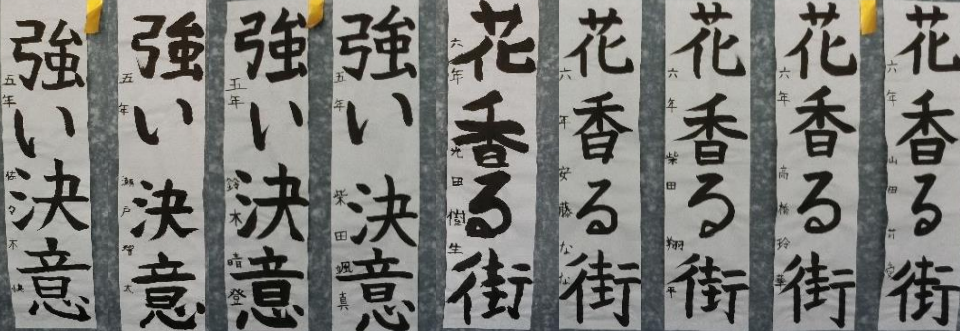 強い決意
五年
強い決意
五年 瀬戸
強い決意
五年 鈴木晴登
強い決意
五年 柴田颯真
花香る街
六年 光田樹生
花香る街
六年 安藤なな
花香る街
六年 柴田翔平
花香る街
六年 高橋玲華
花香る街
六年 山田